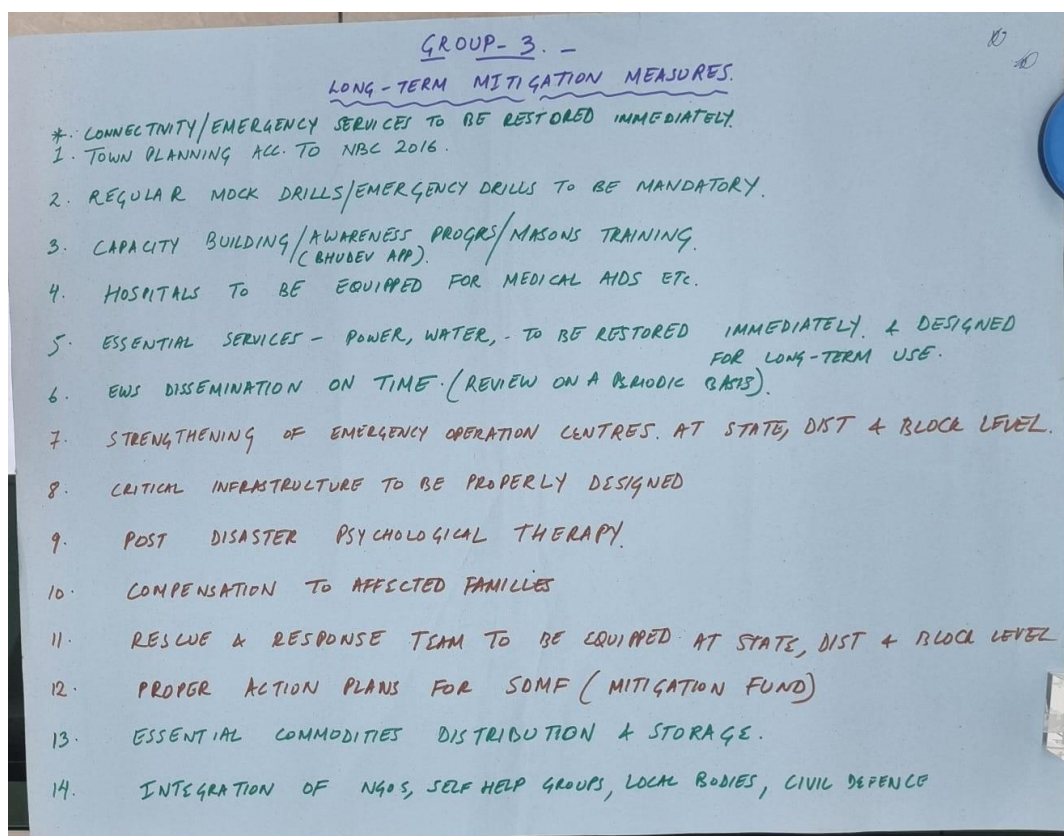 GROUP-3. -
LONG-TERM MITIGATION MEASURES.
*. CONNECTIVITY/EMERGENCY SERVICES TO BE RESTORED IMMEDIATELY.
1. TOWN PLANNING ACC. TO NBC 2016.
2. REGULAR MOCK DRILLS/EMERGENCY DRILLS TO BE MANDATORY.
3. CAPACITY BUILDING/AWARENESS PROGRS/MASONS TRAINING.
(BHUDEV APP).
4. HOSPITALS TO BE EQUIPPED FOR MEDICAL AIDS ETC.
5. ESSENTIAL SERVICES - POWER, WATER, - TO BE RESTORED IMMEDIATELY. & DESIGNED
FOR LONG-TERM USE.
6. EWS DISSEMINATION ON TIME. (REVIEW ON A PERIODIC BASIS).
7. STRENGTHENING OF EMERGENCY OPERATION CENTRES. AT STATE, DIST & BLOCK LEVEL.
8. CRITICAL INFRASTRUCTURE TO BE PROPERLY DESIGNED
9. POST DISASTER PSYCHOLOGICAL THERAPY.
10. COMPENSATION TO AFFECTED FAMILIES
11. RESCUE & RESPONSE TEAM TO BE EQUIPPED AT STATE, DIST & BLOCK LEVEL
12. PROPER ACTION PLANS FOR SDMF (MITIGATION FUND)
13. ESSENTIAL COMMODITIES DISTRIBUTION & STORAGE.
14. INTEGRATION OF NGOS, SELF HELP GROUPS, LOCAL BODIES, CIVIL DEFENCE